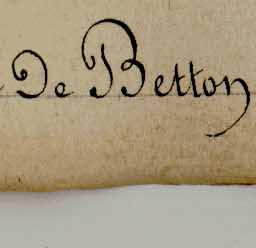 De Betton